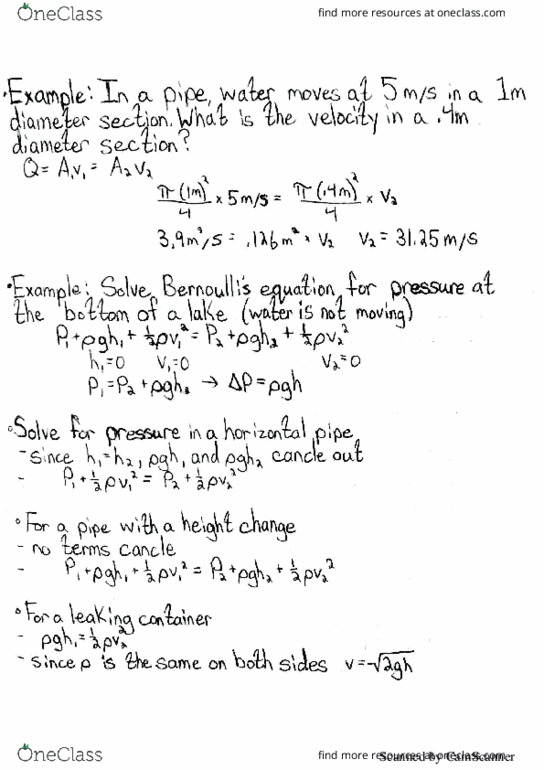 OneClass find more resources at oneclass.com
•Example: In a pipe, water moves at 5 m/s in a 1m
diameter section. What is the velocity in a .4m
diameter section?
Q = A₁v₁ = A₂v₂
π(1m)²/4 × 5m/s = π(.4m)²/4 × v₂
3.9m³/s = .126m² × v₂ v₂ = 31.25 m/s
•Example: Solve Bernoulli's equation for pressure at
the bottom of a lake (water is not moving)
P₁+ρgh₁+½ρv₁² = P₂+ρgh₂+½ρv₂²
h₁=0 v₁=0 v₂=0
P₁=P₂+ρgh₂ → ΔP=ρgh
°Solve for pressure in a horizontal pipe
-since h₁=h₂, ρgh, and ρgh₂ cancle out
- P₁+½ρv₁² = P₂+½ρv₂²
°For a pipe with a height change
- no terms cancle
- P₁+ρgh₁+½ρv₁² = P₂+ρgh₂+½ρv₂²
°For a leaking container
- ρgh₁=½ρv₂²
-since ρ is the same on both sides v=√2gh
OneClass find more resources at oneclass.com
Scanned by CamScanner